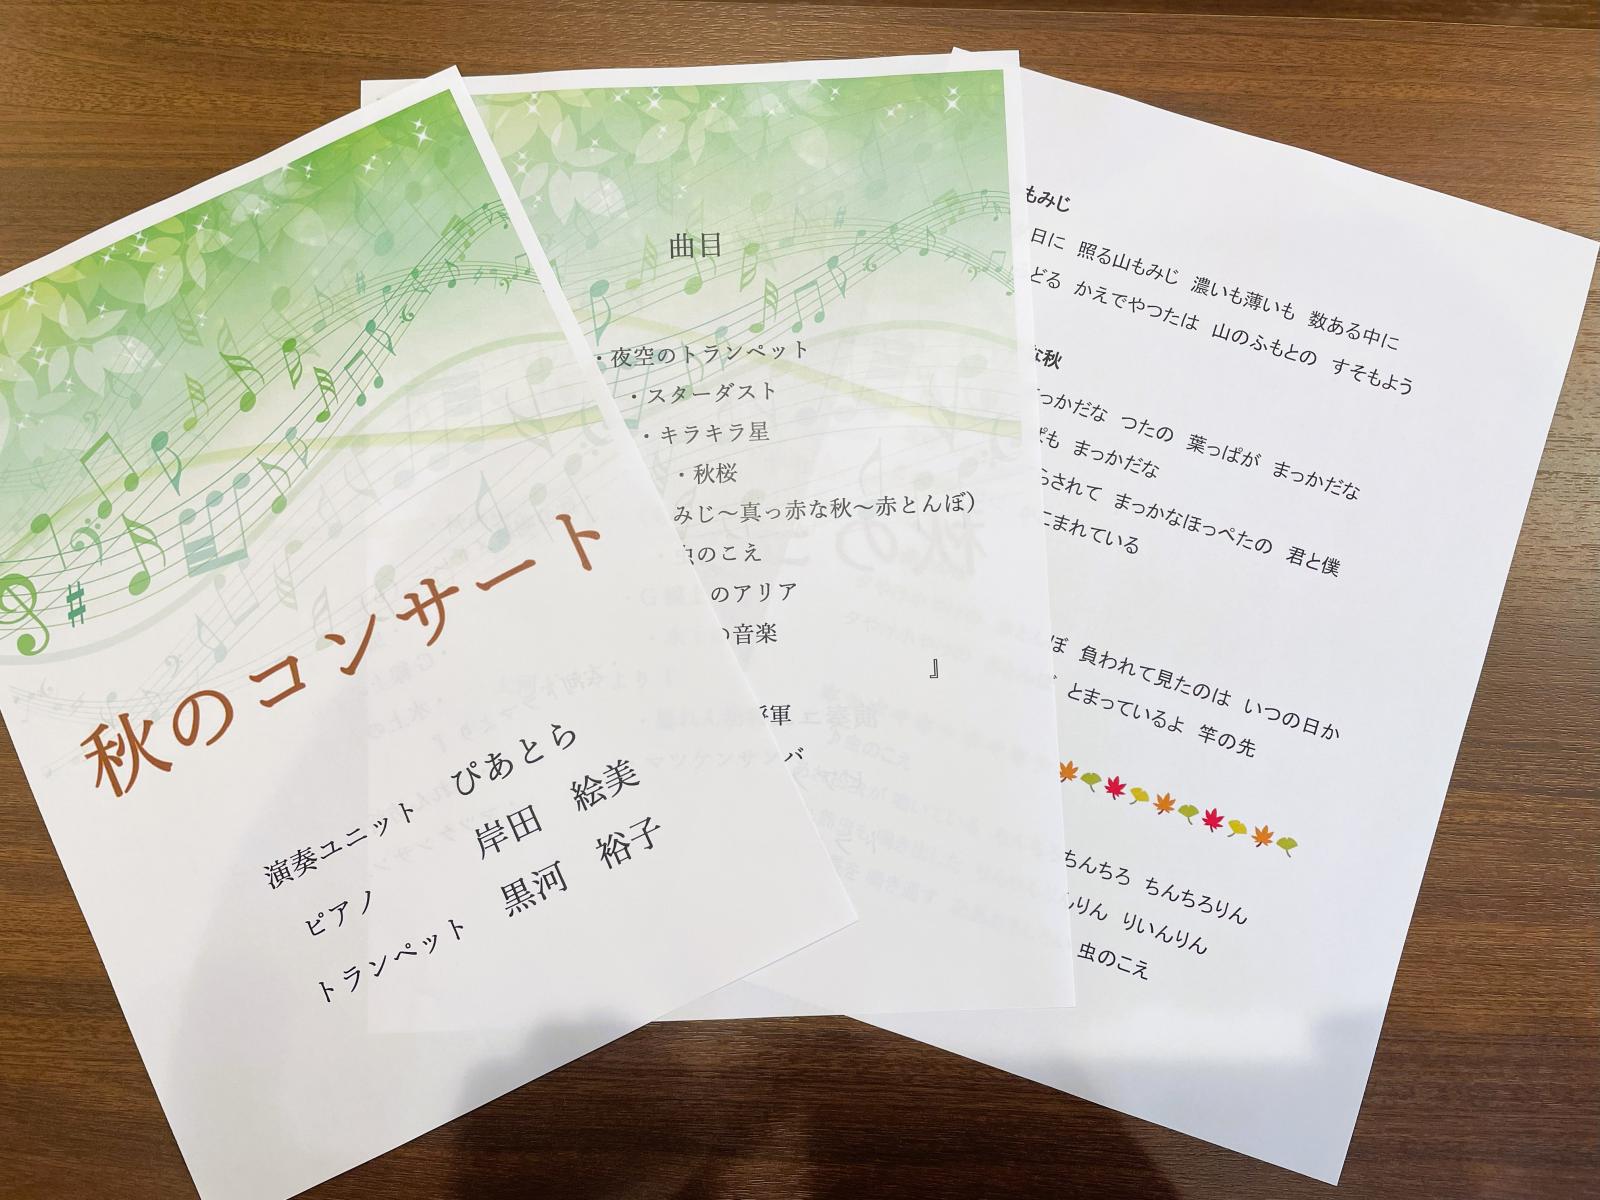 秋のコンサート
演奏ユニット ぴあとら
ピアノ 岸田 絵美
トランペット 黒河 裕子
曲目
・夜空のトランペット
・スターダスト
・キラキラ星
・秋桜
みじ～真っ赤な秋～赤とんぼ）
のこえ
のアリア
の音楽
』
軍
バ
もみじ
日に 照る山もみじ 濃いも薄いも 数ある中に
どる かえでやつたは 山のふもとの すそもよう
な秋
っかだな つたの 葉っぱが まっかだな
も まっかだな
らされて まっかなほっぺたの 君と僕
こまれている
ぼ 負われて見たのは いつの日か
とまっているよ 竿の先
ちんちろ ちんちろりん
んりん りいんりん
虫のこえ